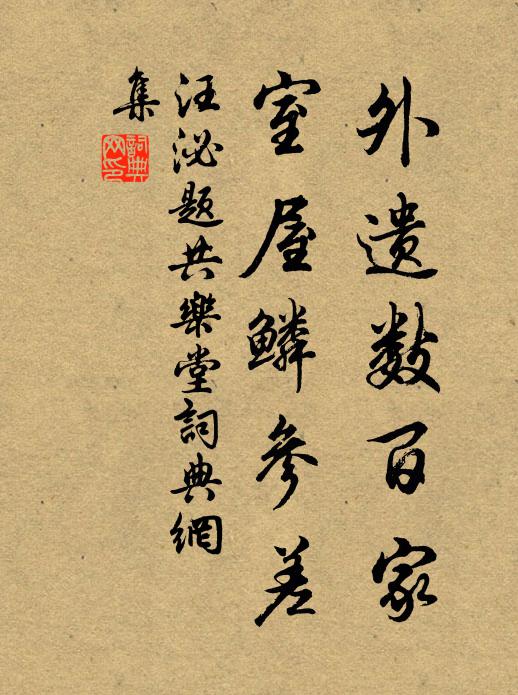 外遗数百家
室屋鳞参差
汪泌题共樂堂詞典網
集
詞典网印